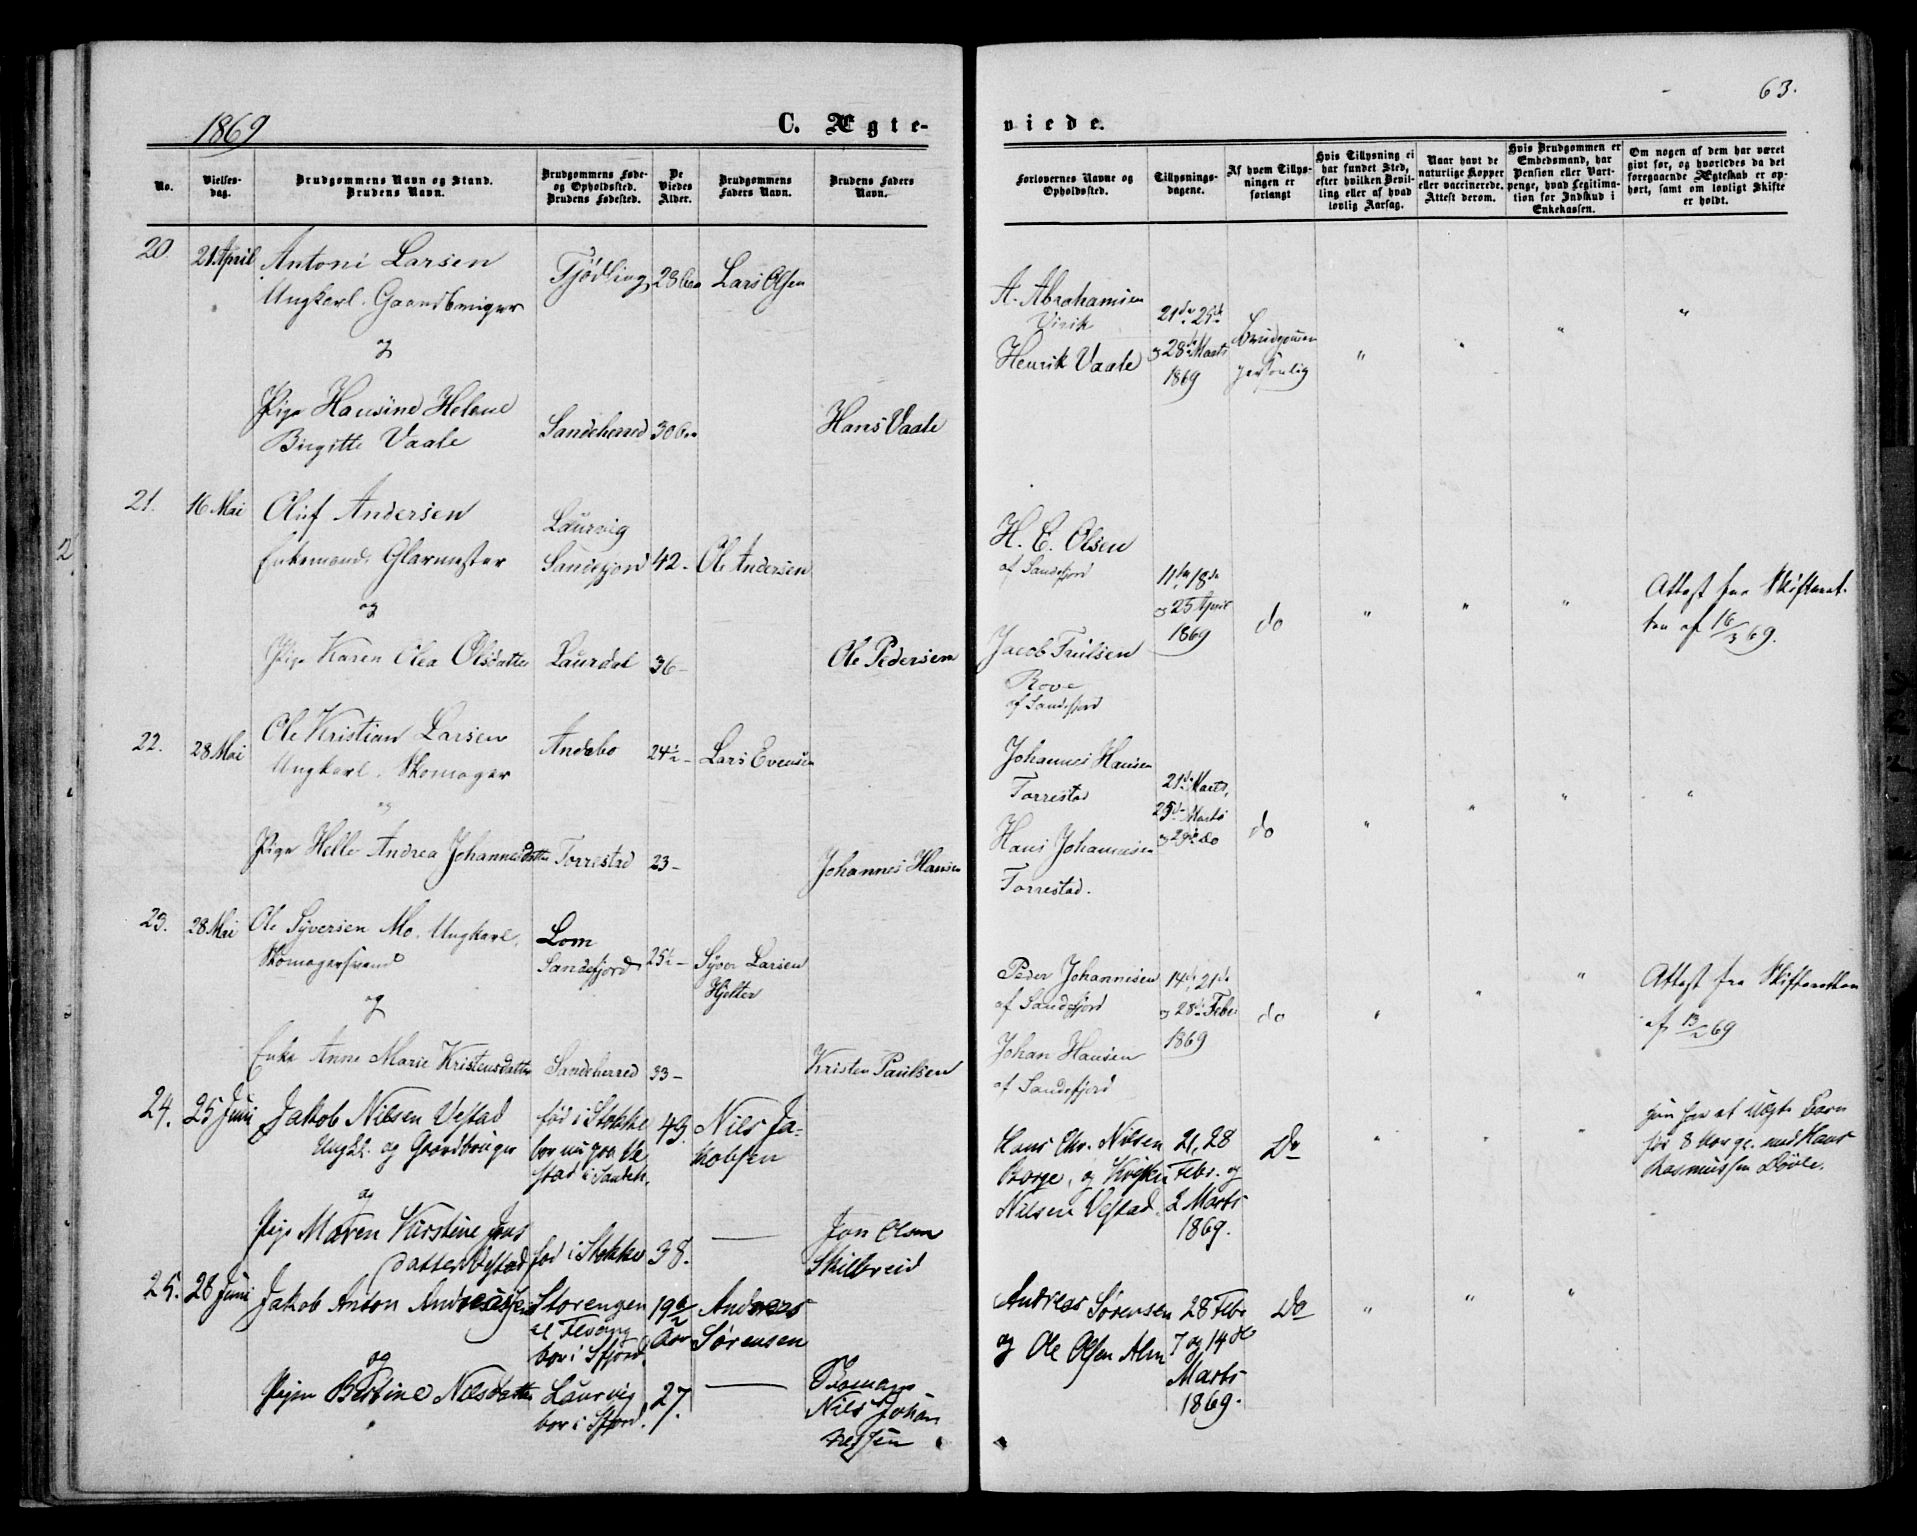 1869
C. Ægte-
No.
Vielses-
dag.
Brudgommens Navn og Stand.
Brudens Navn.
Brudgommens Føde-
og Opholdssted.
Brudens Fødested.
De
Viedes
Alder.
Brudgommens
Faders Navn.
Brudens Faders
Navn.
20. 21 April Antoni Larsen Tjödling 28 Lars Olsen
Ungkarl. Gaardbruger
og
Pige Hansine Helene Sandeherred 30 Hans Vaale
Birgitte Vaale
21. 16 Mai Oluf Andersen Laurvig
Enkemand. Glarmester Sandefjord 42 - Ole Andersen
og
Pige Karen Olea Olsdatter Laurdal 36 - Ole Pedersen
22. 28 Mai Ole Kristian Larsen Andebo 24½ - Lars Evensen
Ungkarl. Skomager
og
Pige Helle Andrea Johannesdatter Torrestad 23 - Johannes Hansen
23. 28 Mai Ole Syversen Mo. Ungkarl. Lom
Skomagersvend Sandefjord 25½ - Syver Larsen
Hjelter
og
Enke Anne Marie Kristensdatter Sandeherred 33 - Kristen Paulsen
24. 25 Juni Jakob Nilsen Vestad fød i Stokke 49. Nils Ja-
Ungk. og Gaardbruger bor nu paa Ve kobsen
stad i Sandeh.
og
Pige Maren Kirstine Jons
datter Vestad fød i Stokke 38. — Jon Olsen
Skillbreid
25. 28 Juni Jakob Anton Andreassen Storengen 19½ Andreas
bor i Sfjord. Aar Sørensen
og
Pigen Bertine Nilsdatter Laurvig 27. — Tomans
bor i Sfjord. Nils Johan
nessen
63.
viede.
Forlovernes Navne og
Opholdssted.
Tillysnings-
dagene.
Af hvem Tillys-
ningen er
forlangt
Hvis Tillysning ei
har fundet Sted,
efter hvilken Bevil-
ling eller af hvad
lovlig Aarsag.
Naar havt de
naturlige Kopper
eller vaccinerede.
Attest derom.
Hvis Brudgommen er
Embedsmand, har
Pension eller Vart-
penge, hvad Legitima-
tion for Indskud i
Enkekassen.
Om nogen af dem har været
gift før, og hvorledes da det
foregaaende Ægteskab er op-
hørt, samt om lovligt Skifte
er holdt.
A. Abrahamsen
Virik 21de 25de Brudgommen
Henrik Vaale og 28de Marts personlig " " " "
1869
H. E. Olsen
af Sandefjord 11te 18de Attest fra Skifteret-
og 25 April do " " " ten af 16/3 69.
Jacob Truelsen 1869
Rove
af Sandefjord
Johannes Hansen 21de Marts,
Torrestad 25de Marts
Hans Johannesen og 29de do do " " " "
Torrestad.
Peder Johannesen 14de, 21de Attest fra Skifteretten
af Sandefjord og 28de Febr do " " " af 13/2 69
Johan Hansen 1869
af Sandefjord
Hans Chr. Nilsen 21, 28 Do " " " Hun har et Uægte Barn
Borge, og Febr. og før med Hans
Nilsen Vestad. 2 Marts Rasmussen
1869.
Andreas Sørensen 28 Febr Do " " "
og Ole Olsen Alm 7 og 14de
Marts
1869.